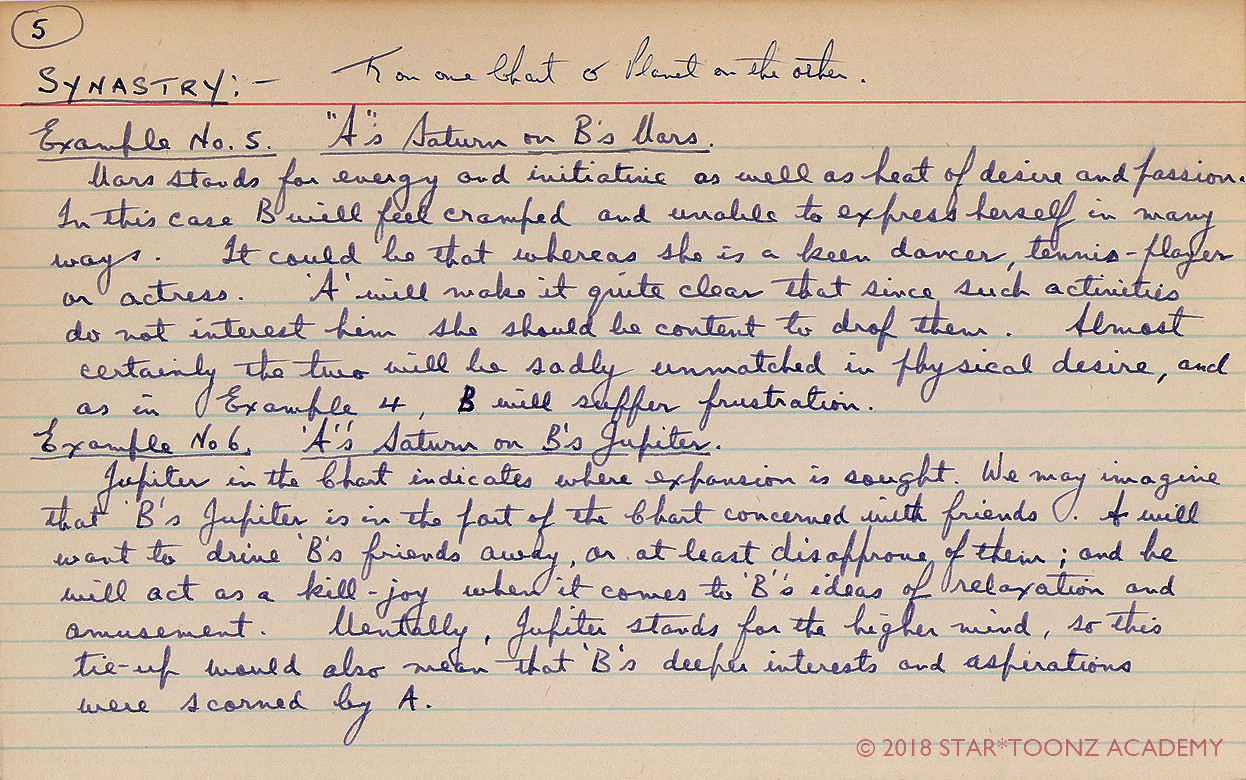 5
SYNASTRY:- ♄ on one Chart ☌ Planet on the other.
Example No. 5. "A"s Saturn on B's Mars.
Mars stands for energy and initiative as well as heat of desire and passion.
In this case B will feel cramped and unable to express herself in many
ways. It could be that whereas she is a keen dancer, tennis-player
or actress. 'A' will make it quite clear that since such activities
do not interest him she should be content to drop them. Almost
certainly the two will be sadly unmatched in physical desire, and
as in Example 4, B will suffer frustration.
Example No 6. 'A's Saturn on B's Jupiter.
Jupiter in the Chart indicates where expansion is sought. We may imagine
that 'B's Jupiter is in the part of the Chart concerned with friends. A will
want to drive 'B's friends away, or at least disapprove of them; and he
will act as a kill-joy when it comes to 'B's ideas of relaxation and
amusement. Mentally, Jupiter stands for the higher mind, so this
tie-up would also mean that 'B's deeper interests and aspirations
were scorned by A.
© 2018 STAR*TOONZ ACADEMY